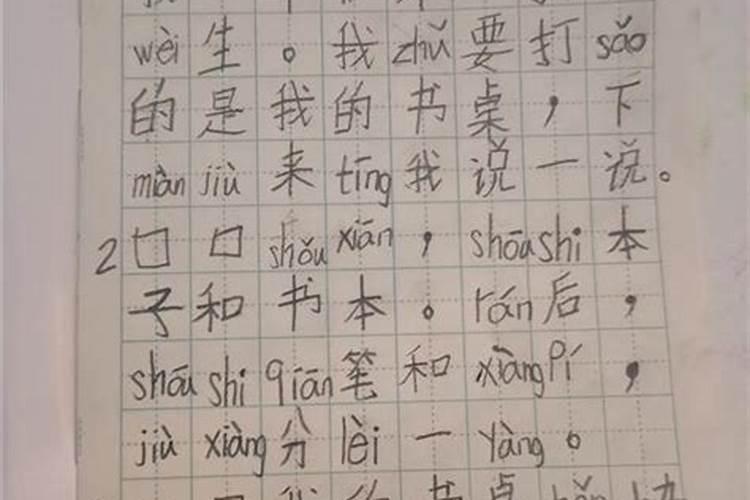 wèi生。我zhǔ要打sǎo
的是我的书桌，下
miàn jiù 来 tīng 我说一说。
2 口口 shǒu xiān，shōu shi 本
子和书本。rán后，
shōu shi qiān 笔和 xiàng pí，
jiù xiàng 分 lèi 一 yàng。
我的书桌